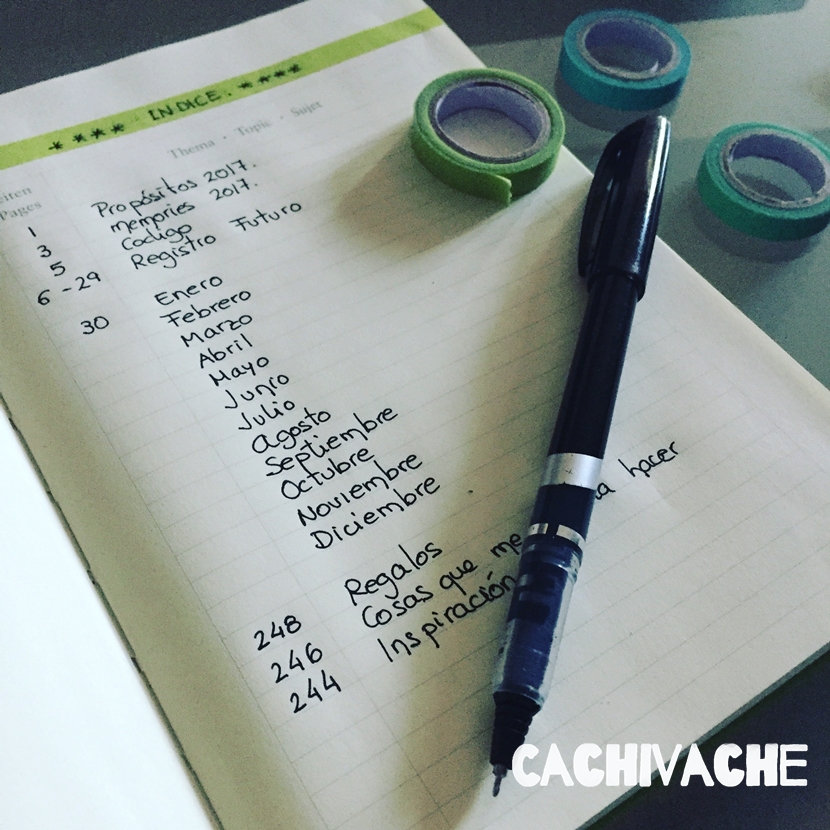 **** INDICE. ****
Thema · Topic · Sujet
Pages
1 Propósitos 2017.
3 memories 2017.
5 Código
6-29 Registro Futuro
30 Enero
Febrero
Marzo
Abril
Mayo
Junio
Julio
Agosto
Septiembre
Octubre
Noviembre
Diciembre
248 Regalos
246 Cosas que me hacer
244 Inspiración
CACHIVACHE